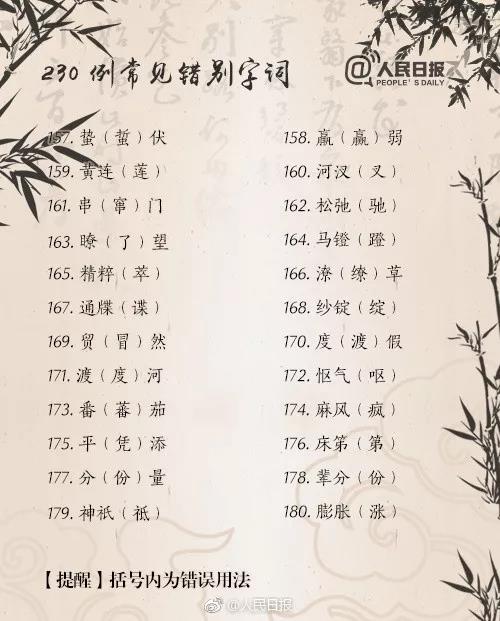 230 例常见错别字词
@人民日报
PEOPLE'S DAILY
157. 蛰（蜇）伏
158. 羸（赢）弱
159. 黄连（莲）
160. 河汊（叉）
161. 串（窜）门
162. 松弛（驰）
163. 瞭（了）望
164. 马镫（蹬）
165. 精粹（萃）
166. 潦（缭）草
167. 通牒（谍）
168. 纱锭（绽）
169. 贸（冒）然
170. 度（渡）假
171. 渡（度）河
172. 怄气（呕）
173. 番（蕃）茄
174. 麻风（疯）
175. 平（凭）添
176. 床笫（第）
177. 分（份）量
178. 辈分（份）
179. 神祇（祗）
180. 膨胀（涨）
【提醒】括号内为错误用法
@人民日报